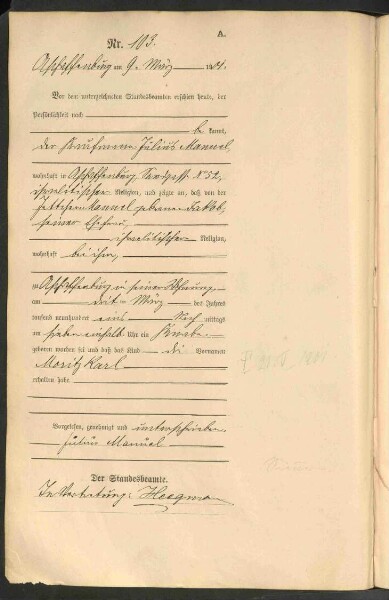 A.
Nr. 103.
Aschaffenburg am 9. März 1901.
Vor dem unterzeichneten Standesbeamten erschien heute, der
Persönlichkeit nach
be kannt,
der Kaufmann Julius Manuel
wohnhaft in Aschaffenburg N 52,
israelitischer Religion, und zeigte an, daß von der
Manuel geborene Jakob,
seiner Ehefrau,
israelitischer Religion,
wohnhaft bei ihm,
zu Aschaffenburg in seiner Wohnung,
am März des Jahres
tausend neunhundert eins Nach mittags
um sieben einhalb Uhr ein Knabe
geboren worden sei und daß das Kind die Vornamen
Moritz Karl
erhalten habe
Vorgelesen, genehmigt und unterschrieben
Julius Manuel
Der Standesbeamte.
In Vertretung: